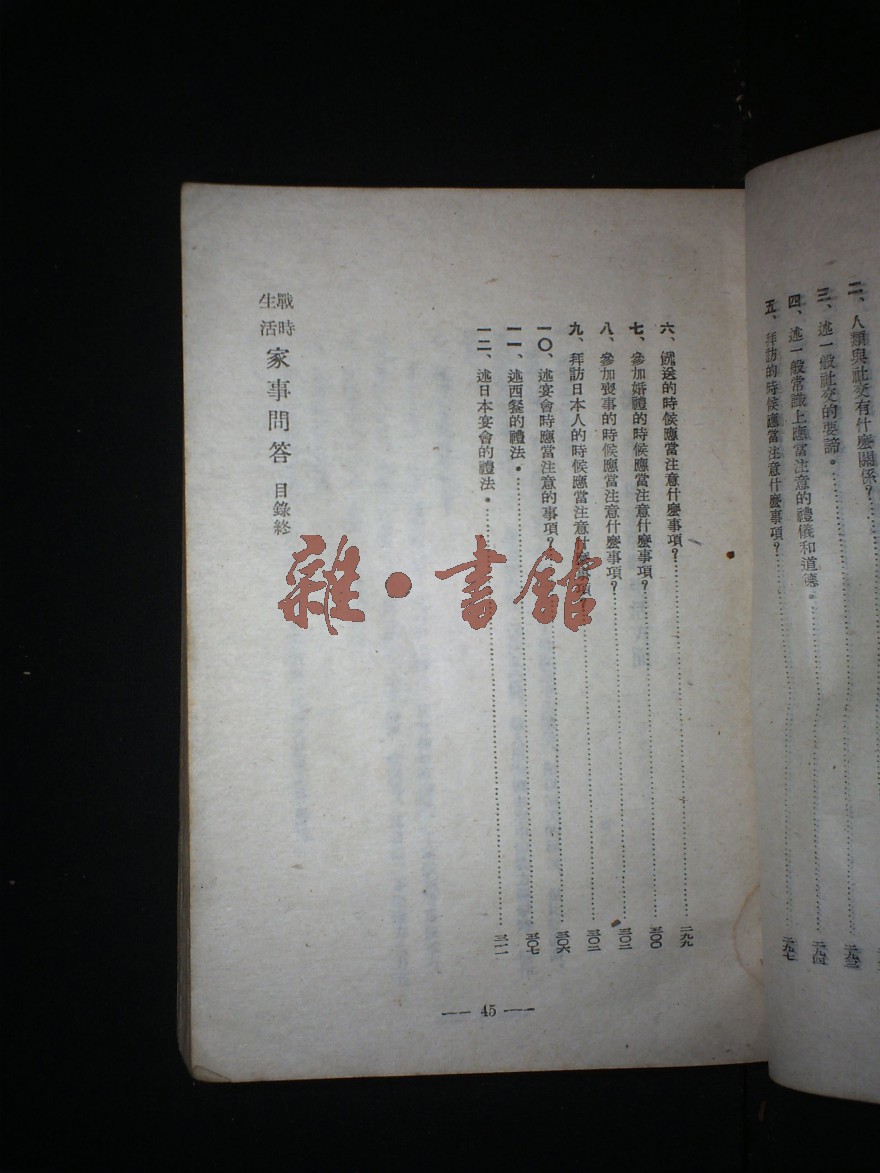 二、人類與社交有什麼關係？
三、述一般社交的要諦。
二九三
四、述一般常識上應當注意的禮儀和道德。
二九四
五、拜訪的時候應當注意什麼事項？
二九七
六、餽送的時候應當注意什麼事項？
二九九
七、參加婚禮的時候應當注意什麼事項？
三〇〇
八、參加喪事的時候應當注意什麼事項？
三〇二
九、拜訪日本人的時候應當注意什麼事項？
三〇二
一〇、述宴會時應當注意的事項？
三〇六
一一、述西餐的禮法。
三〇七
一二、述日本宴會的禮法。
三一一
戰時生活 家事問答 目錄終
— 45 —
雜·書館